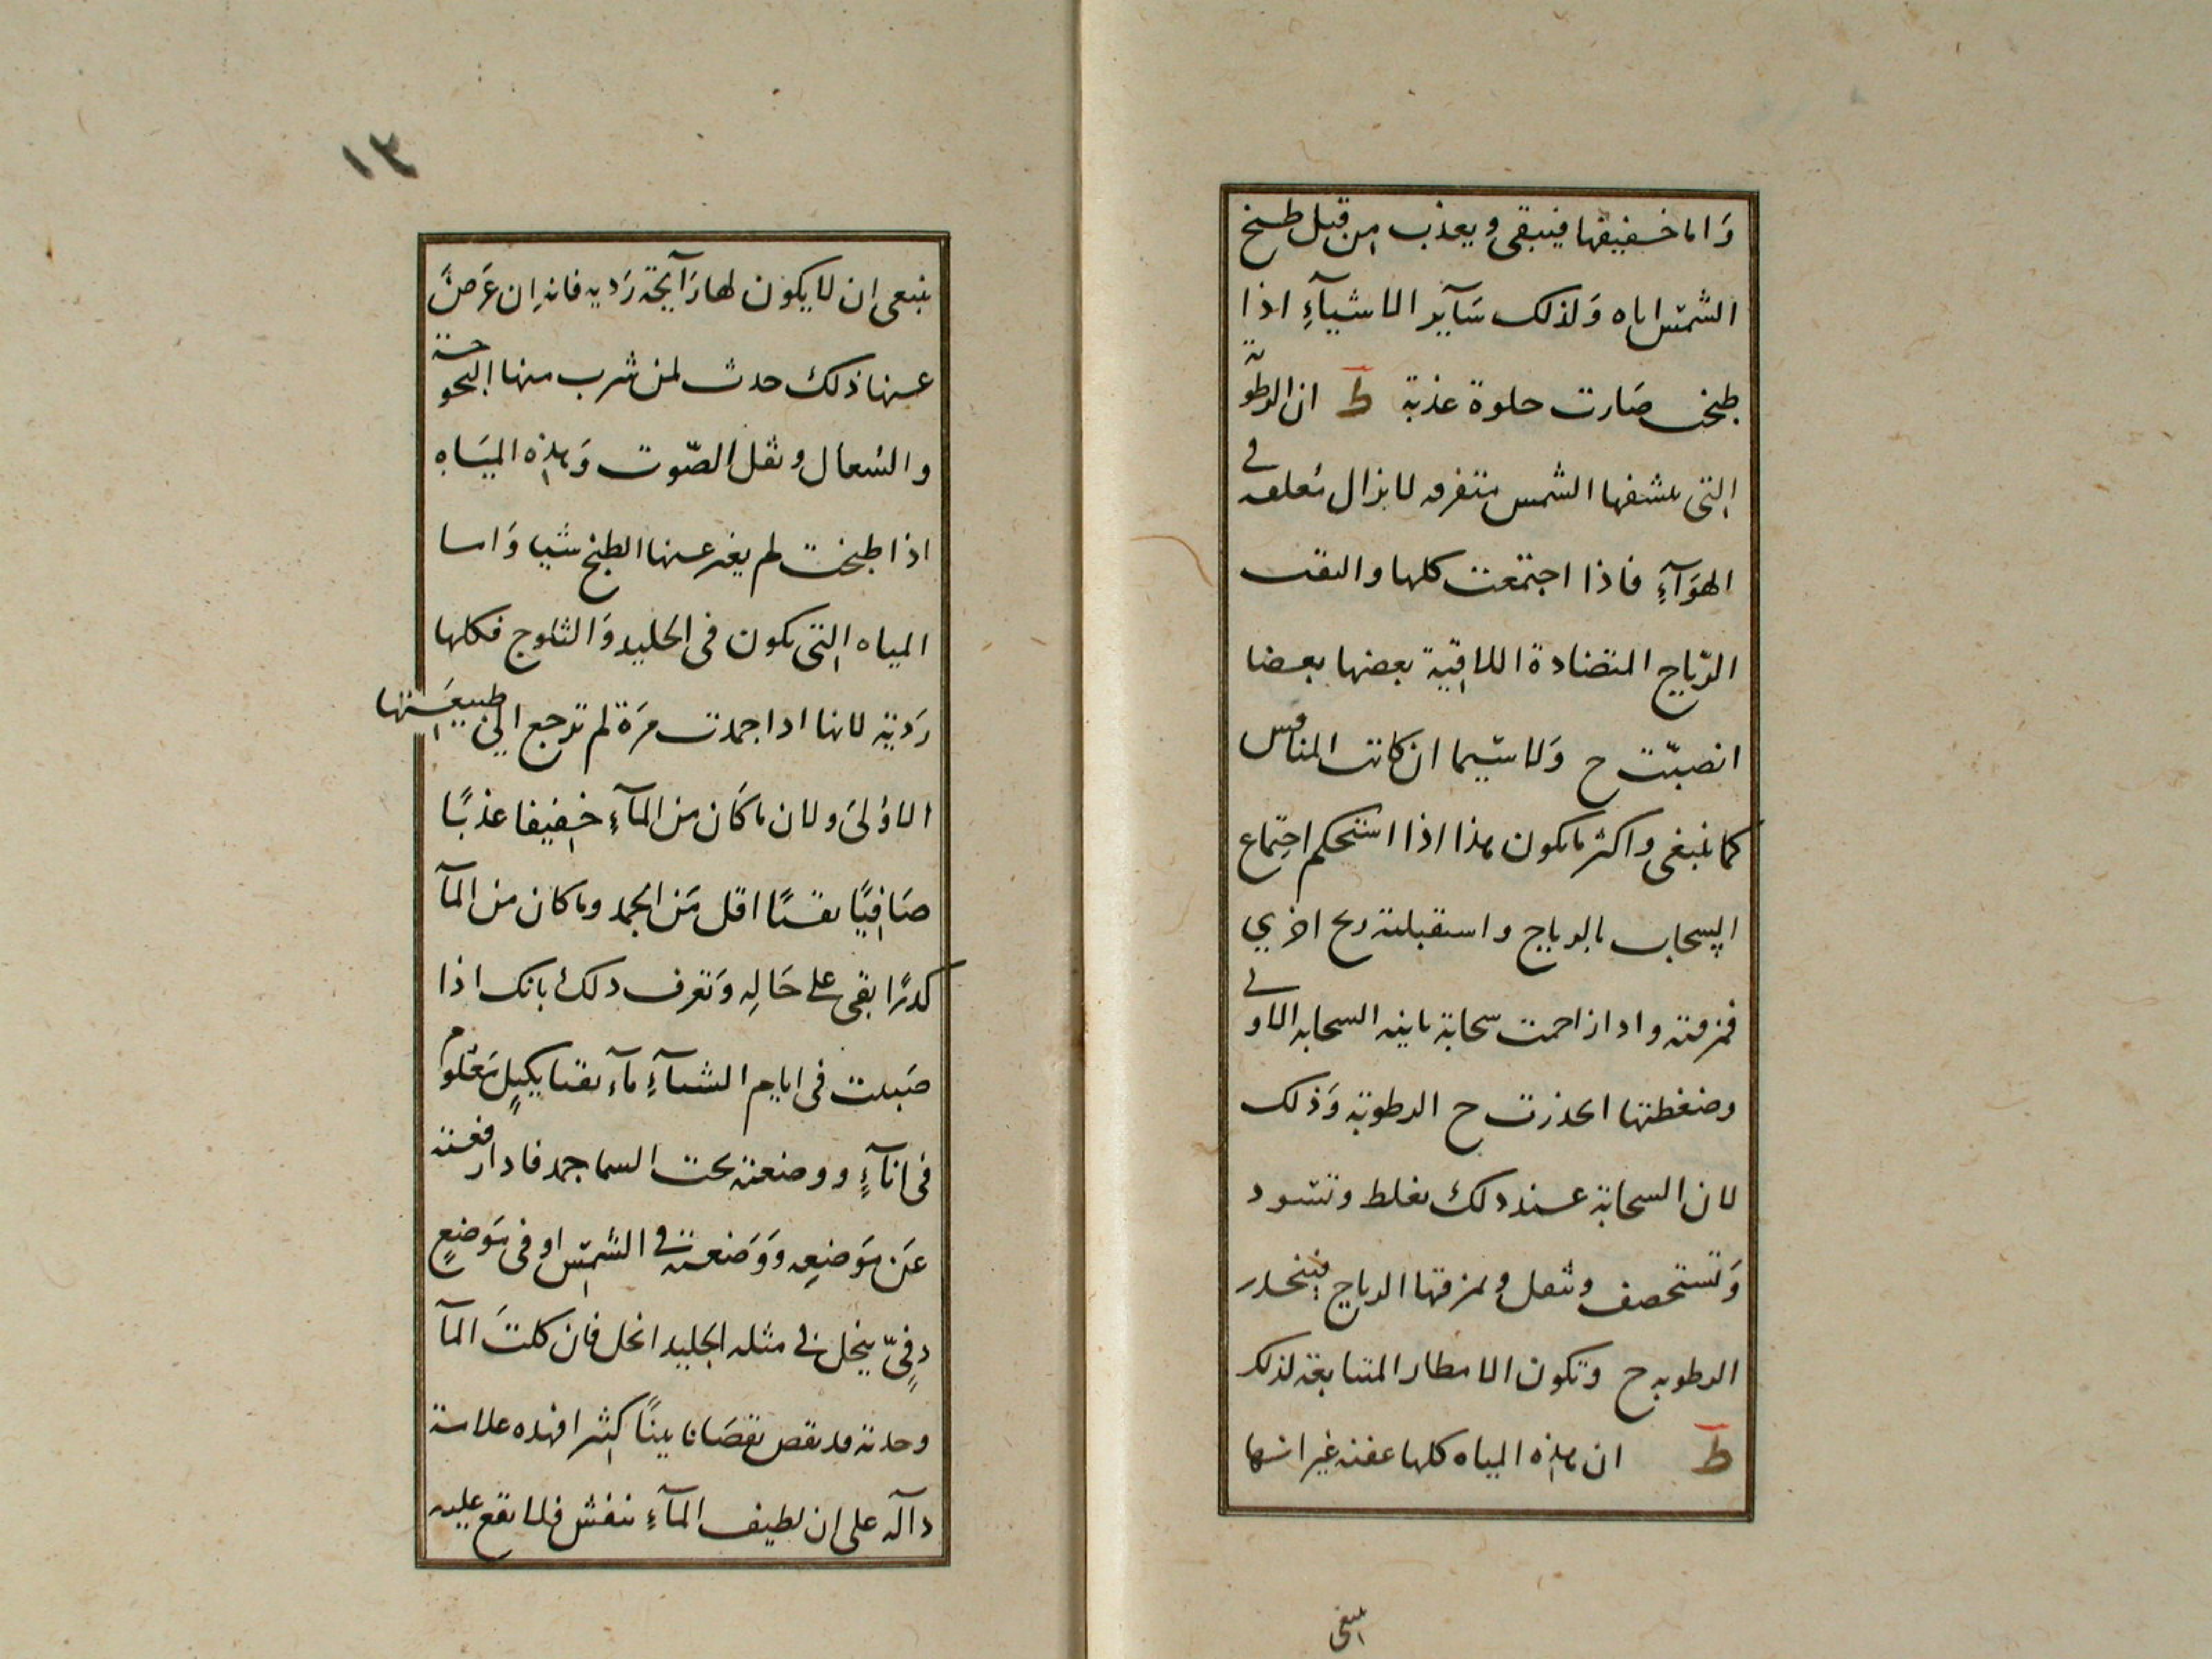 وَاما خفيفها فيبقى ويعذب من قبل طبخ
الشمس اياه وَلذلك سَآير الاشيآءِ اذا
طبخت صَارت حلوة عذبة ط ان الرطوبة
التى ىىشفها الشمس متفرقه لا يزال معلقه فى
الهوَآءِ فاذا اجتمعت كلها والتقت
الرّياح المتضادة اللاقية بعضها بعضا
انصبّت ح وَلا سيّما ان كانت
كما ينبغى واكثر ما يكون هذا اذا استحكم اجتماع
السحاب بالرياح واستقبلته ريح اخري
فمزقته واذا زاحمت سحابة ماينه السحابه الاولى
وضغطتها انحذرت ح الرطوبة وَذلك
لان السحابة عند ذلك تغلظ وتسود
وَتستحصف وتثقل وتمزقها الرياح فينحدر
الرطوبه ح وتكون الامطار المتتابعة لذلك
ط ان هذه المياه كلها عفنه غير انها
ينبغى
١٣
ينبغى ان لا يكون لها رَآيحة رَديه فانه ان عَرَضَ
عنها ذلك حدث لمن شرب منها البحوحة
والسُعال وثقل الصّوت وَهذه الميَاه
اذا طبخت لم يغير عنها الطبخ شيا وَاما
المياه التى تكون فى الجليد وَالثلوج فكلها
رَديّة لانها اذا جمدت مَرَة لم ترجع الى طبيعَتها
الاوُلىَ ولان ما كَان من المآءِ خفيفا عذبًا
صَافيًا نقيًا اقل مَن الجمد وما كان من المآ
كدرًا بقى على حَالِهِ وَتعرف ذلك بانك اذا
صَببت فى ايام الشتآءِ مآء نقيا بكيلٍ مَعْلوم
فى انآءٍ ووضعته تحت السما جمد فاذا رفعته
عَن مَوضعِه وَوَضعته فى الشمس او فى مَوضعٍ
دفىّ ينحل فى مثله الجليد انحل فان كلتَ المآ
وجدته قد نقص نقصَانا بينًا كثيرا فهذه علامة
دآله على ان لطيف المآءِ ينفش فلا يقع عليه